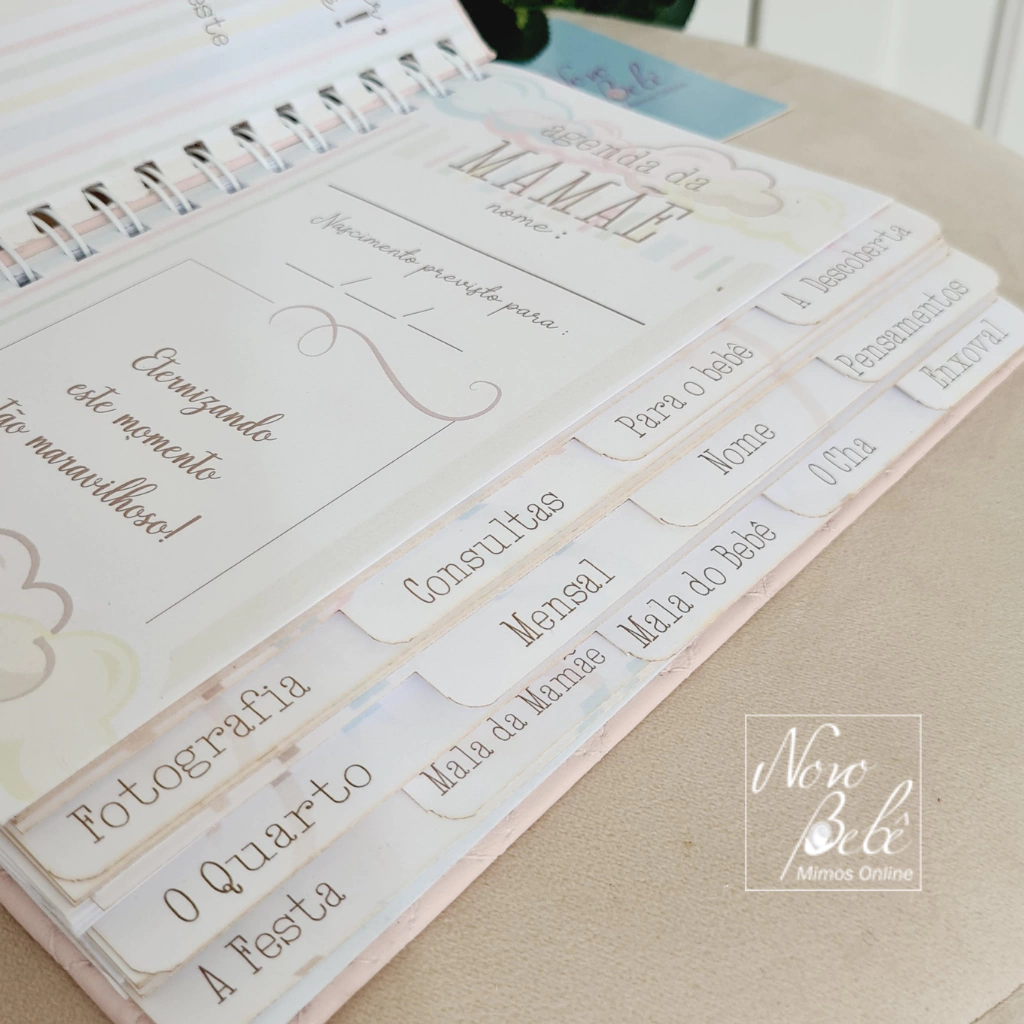 este
agenda da
MAMÃE
nome:
Nascimento previsto para:
/ /
Eternizando
este momento
tão maravilhoso!
A Descoberta
Para o bebê
Consultas
Fotografia
Pensamentos
Nome
Mensal
O Quarto
Enxoval
O Cha
Mala do Bebê
Mala da Mamãe
A Festa
Novo
Bebê
Mimos Online